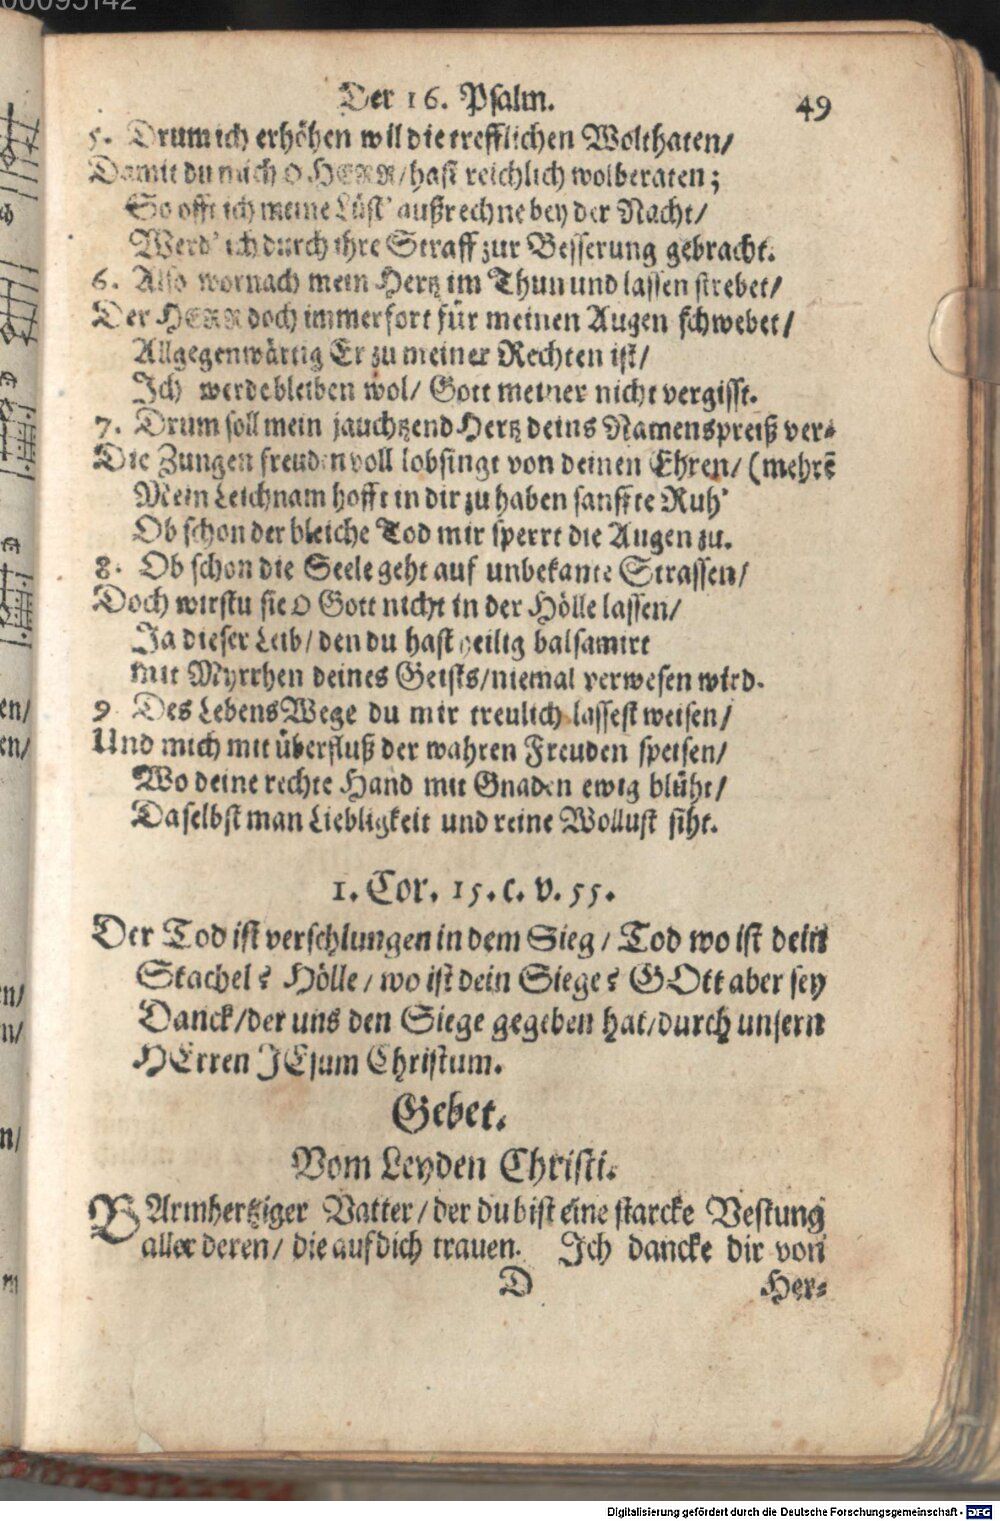 Der 16. Psalm. 49
5. Drum ich erhöhen wil die trefflichen Wolthaten/
Damit du mich O HERR/hast reichlich wolberaten;
So offt ich meine Lüst' außrechne bey der Nacht/
Werd' ich durch ihre Straff zur Besserung gebracht.
6. Also wornach mein Hertz im Thun und lassen strebet/
Der HERR doch immerfort für meinen Augen schwebet/
Allgegenwärtig Er zu meiner Rechten ist/
Ich werde bleiben wol/ Gott meiner nicht vergisst.
7. Drum soll mein jauchtzend Hertz deins Namens preiß ver-
Die Zungen freuden voll lobsingt von deinen Ehren/ (mehrē
Mein Leichnam hofft in dir zu haben sanffte Ruh'
Ob schon der bleiche Tod mir sperrt die Augen zu.
8. Ob schon die Seele geht auf unbekante Strassen/
Doch wirstu sie O Gott nicht in der Hölle lassen/
Ja dieser Leib/ den du hast heilig balsamirt
Mit Myrrhen deines Geists/niemal verwesen wird.
9 Des Lebens Wege du mir treulich lassest weisen/
Und mich mit überfluß der wahren Freuden speisen/
Wo deine rechte Hand mit Gnaden ewig blüht/
Daselbst man Liebligkeit und reine Wollust siht.
1. Cor. 15. c. v. 55.
Der Tod ist verschlungen in dem Sieg/ Tod wo ist dein
Stachel? Hölle/ wo ist dein Siege? GOtt aber sey
Danck/der uns den Siege gegeben hat/durch unsern
HErren JEsum Christum.
Gebet.
Vom Leyden Christi.
BArmhertziger Vatter/ der du bist eine starcke Vestung
aller deren/ die auf dich trauen. Ich dancke dir von
D Her-
en/
en/
n/
n/
n/
m
Digitalisierung gefördert durch die Deutsche Forschungsgemeinschaft - DFG